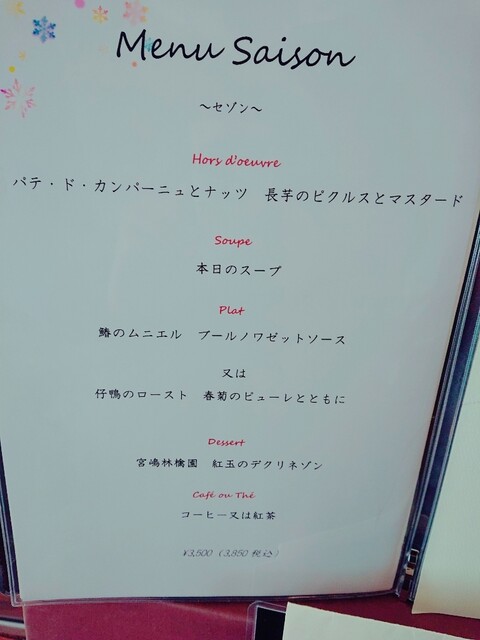 Menu Saison
～セゾン～
Hors d'oeuvre
パテ・ド・カンパーニュとナッツ　長芋のピクルスとマスタード
Soupe
本日のスープ
Plat
鰆のムニエル　ブールノワゼットソース
又は
仔鴨のロースト　春菊のピューレとともに
Dessert
宮嶋林檎園　紅玉のデクリネゾン
Café ou Thé
コーヒー又は紅茶
¥3,500（3,850 税込）